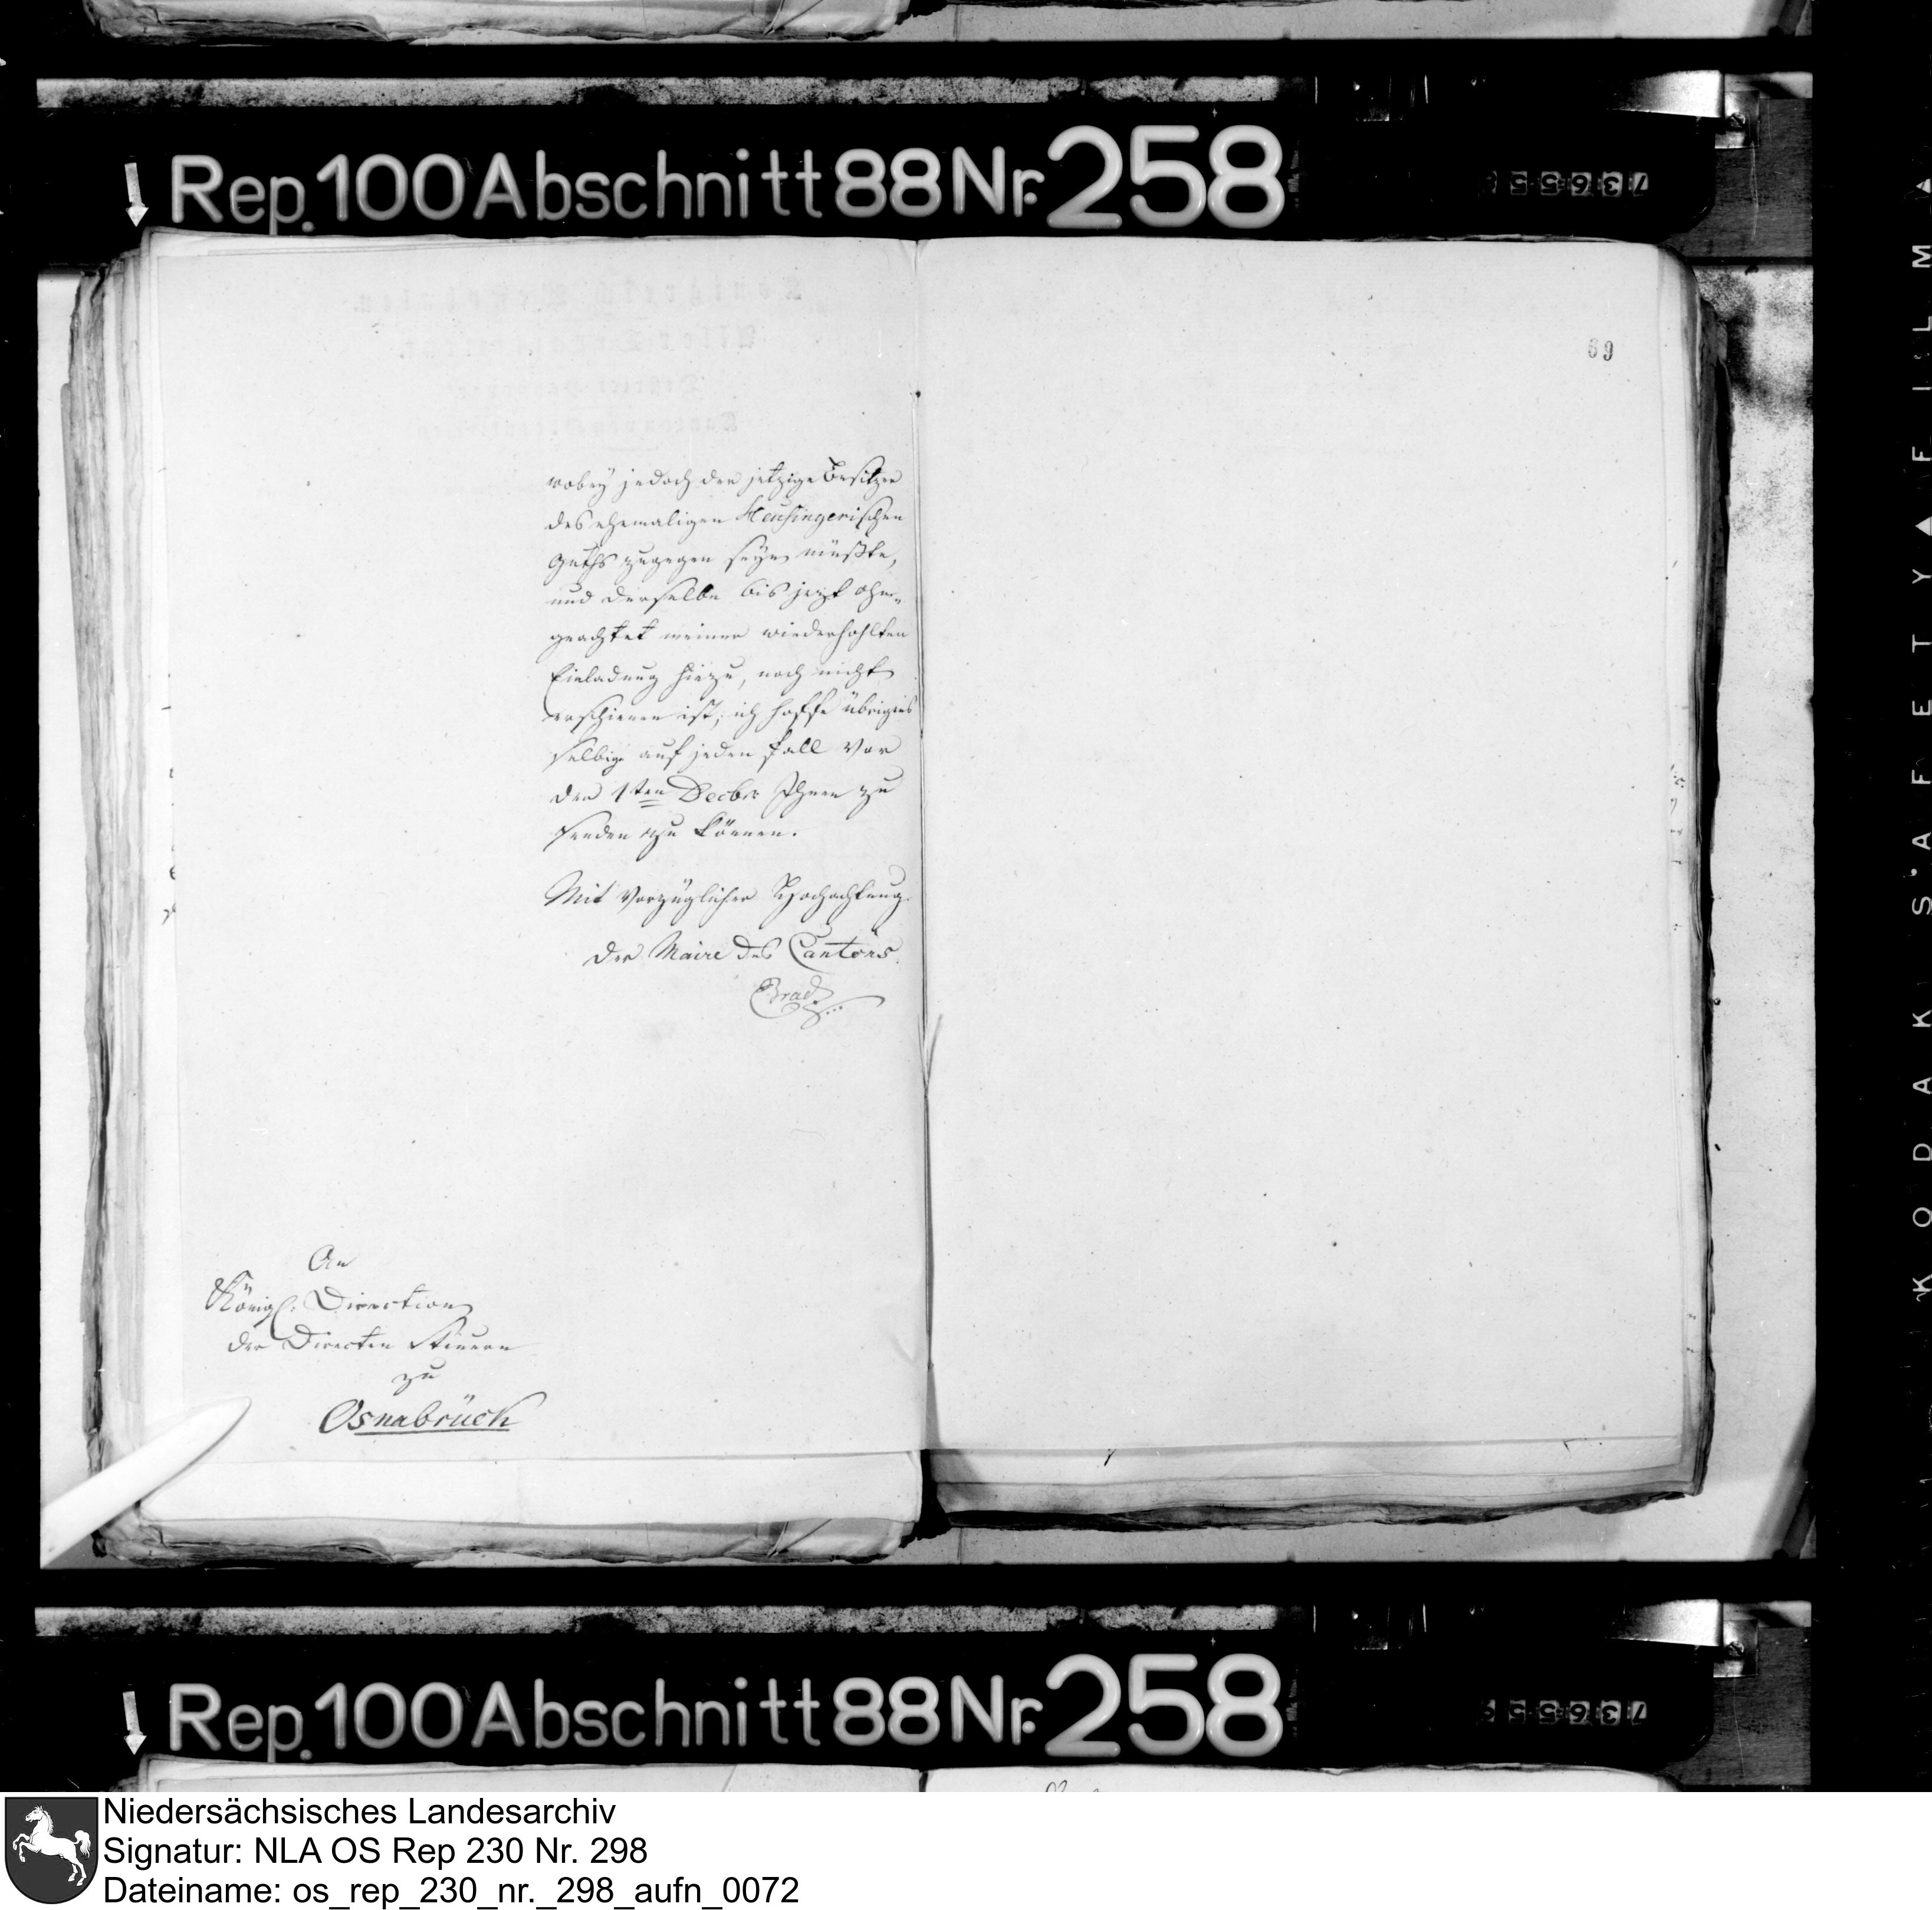 Rep. 100 Abschnitt 88 Nr. 258
69
wobey jedoch der jetzige Besitzer
des ehemaligen Heusingerischen
Guths zugegen seyn müßte,
und derselbe bis jezt ohn-
geachtet meiner wiederhohlten
Einladung hiezu, noch nicht
erschienen ist; ich hoffe übrigens
selbige auf jeden Fall vor
den 1ten Decbr. Ihnen zu
senden zu können.
Mit vorzüglicher Hochachtung
Der Maire des Cantons.
An
Königl. Direction
der Directen Steuern
zu
Osnabrück
Rep. 100 Abschnitt 88 Nr. 258
KODAK SAFETY FILM
Niedersächsisches Landesarchiv
Signatur: NLA OS Rep 230 Nr. 298
Dateiname: os_rep_230_nr._298_aufn_0072